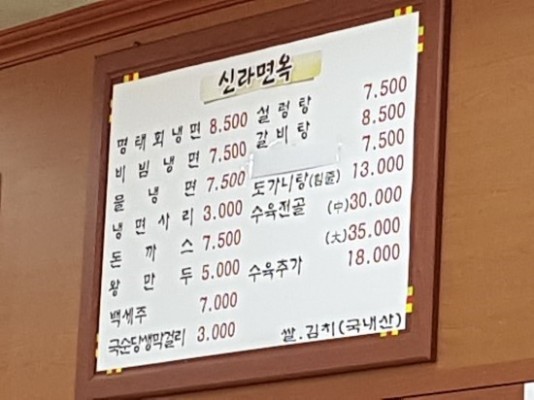 신라면옥
명태회냉면 8.500
비빔냉면 7.500
물냉면 7.500
냉면사리 3.000
돈까스 7.500
왕만두 5.000
백세주 7.000
국순당생막걸리 3.000
설렁탕 7.500
갈비탕 8.500
7.500
도가니탕(힘줄) 13.000
수육전골 (中)30.000
(大)35.000
수육추가 18.000
쌀.김치(국내산)